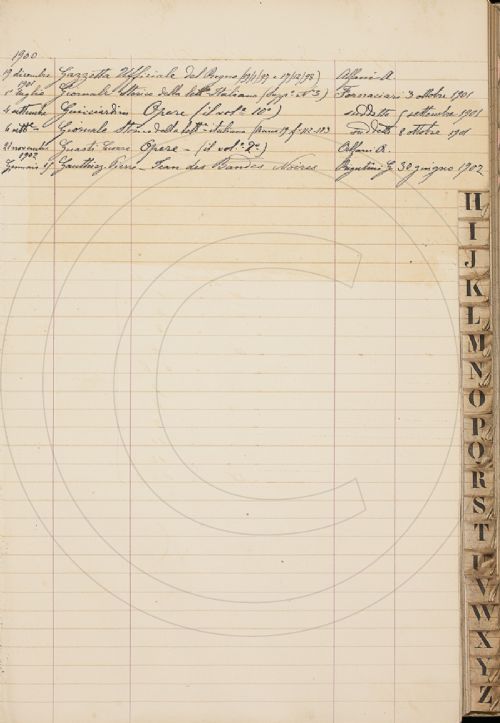 1900
19 dicembre Gazzetta Ufficiale del Regno (9/1/97 e 17/12/98) Alfani A.
1901
1° luglio Giornale Storico della lett. Italiana (Supp. N° 3) Fornaciari 3 ottobre 1901
4 settembre Guicciardini Opere (il vol° 10°) suddetto 5 settembre 1901
6 sett.e Giornale Storico della lett. italiana (Anno 19 f. 112-113 suddetto 8 ottobre 1901
21 novembre Guasti Cesare Opere - (il vol° 2°) Alfani A.
1902
Gennaio Gauthiez Pierre - Jean des Bandes Noires 30 giugno 1902
H
I
J
K
L
M
N
O
P
Q
R
S
T
U
V
W
X
Y
Z